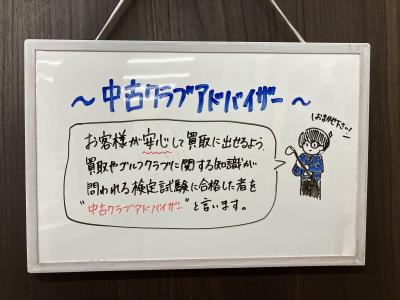 ～中古クラブアドバイザー～
お客様が安心して買取に出せるよう、
買取やゴルフクラブに関する知識が
問われる検定試験に合格した者を
"中古クラブアドバイザー"と言います。
おまかせ下さい!